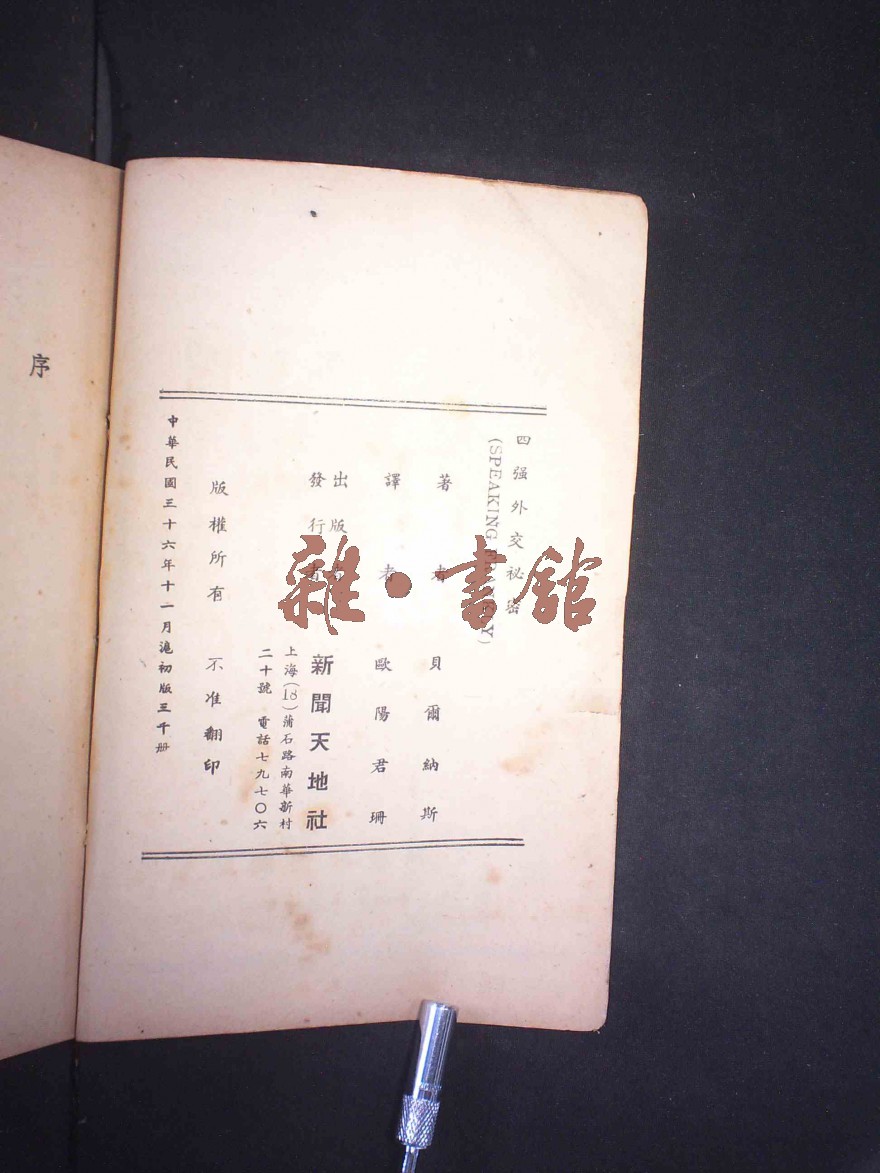 四强外交祕密
(SPEAKING FRANKLY)
著者 貝爾納斯
譯者 歐陽君珊
出版者
發行者
新聞天地社
上海(18)蒲石路南華新村
二十號 電話七九七〇六
版權所有 不准翻印
中華民國三十六年十一月滬初版三千册
序
雜·書館